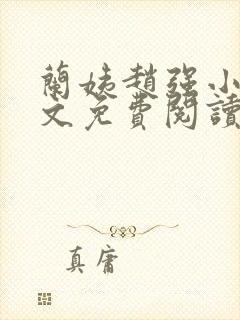 蘭姨趙強小
文免費閱讀
真庸